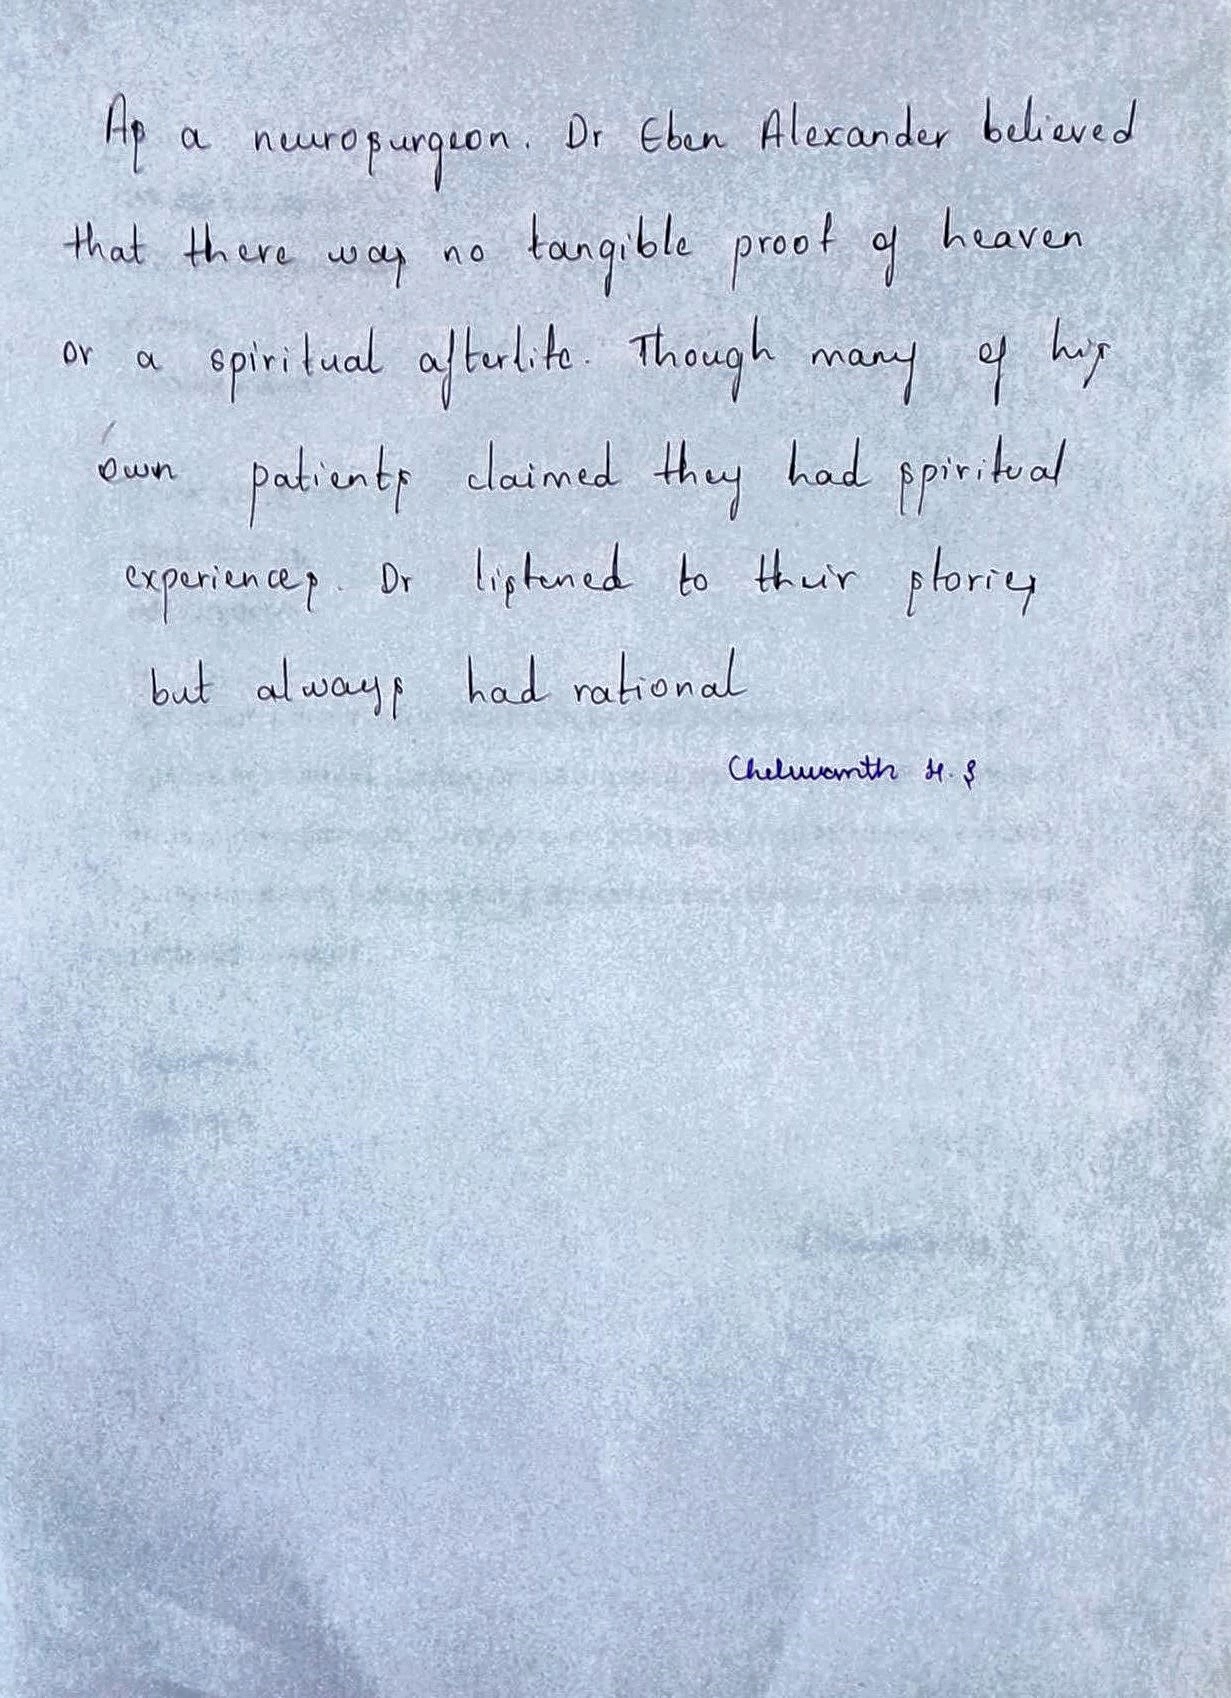 As a neurosurgeon. Dr Eben Alexander believed
that there was no tangible proof of heaven
or a spiritual afterlife. Though many of his
own patients claimed they had spiritual
experiences. Dr listened to their stories
but always had rational
Cheluvanth H.S